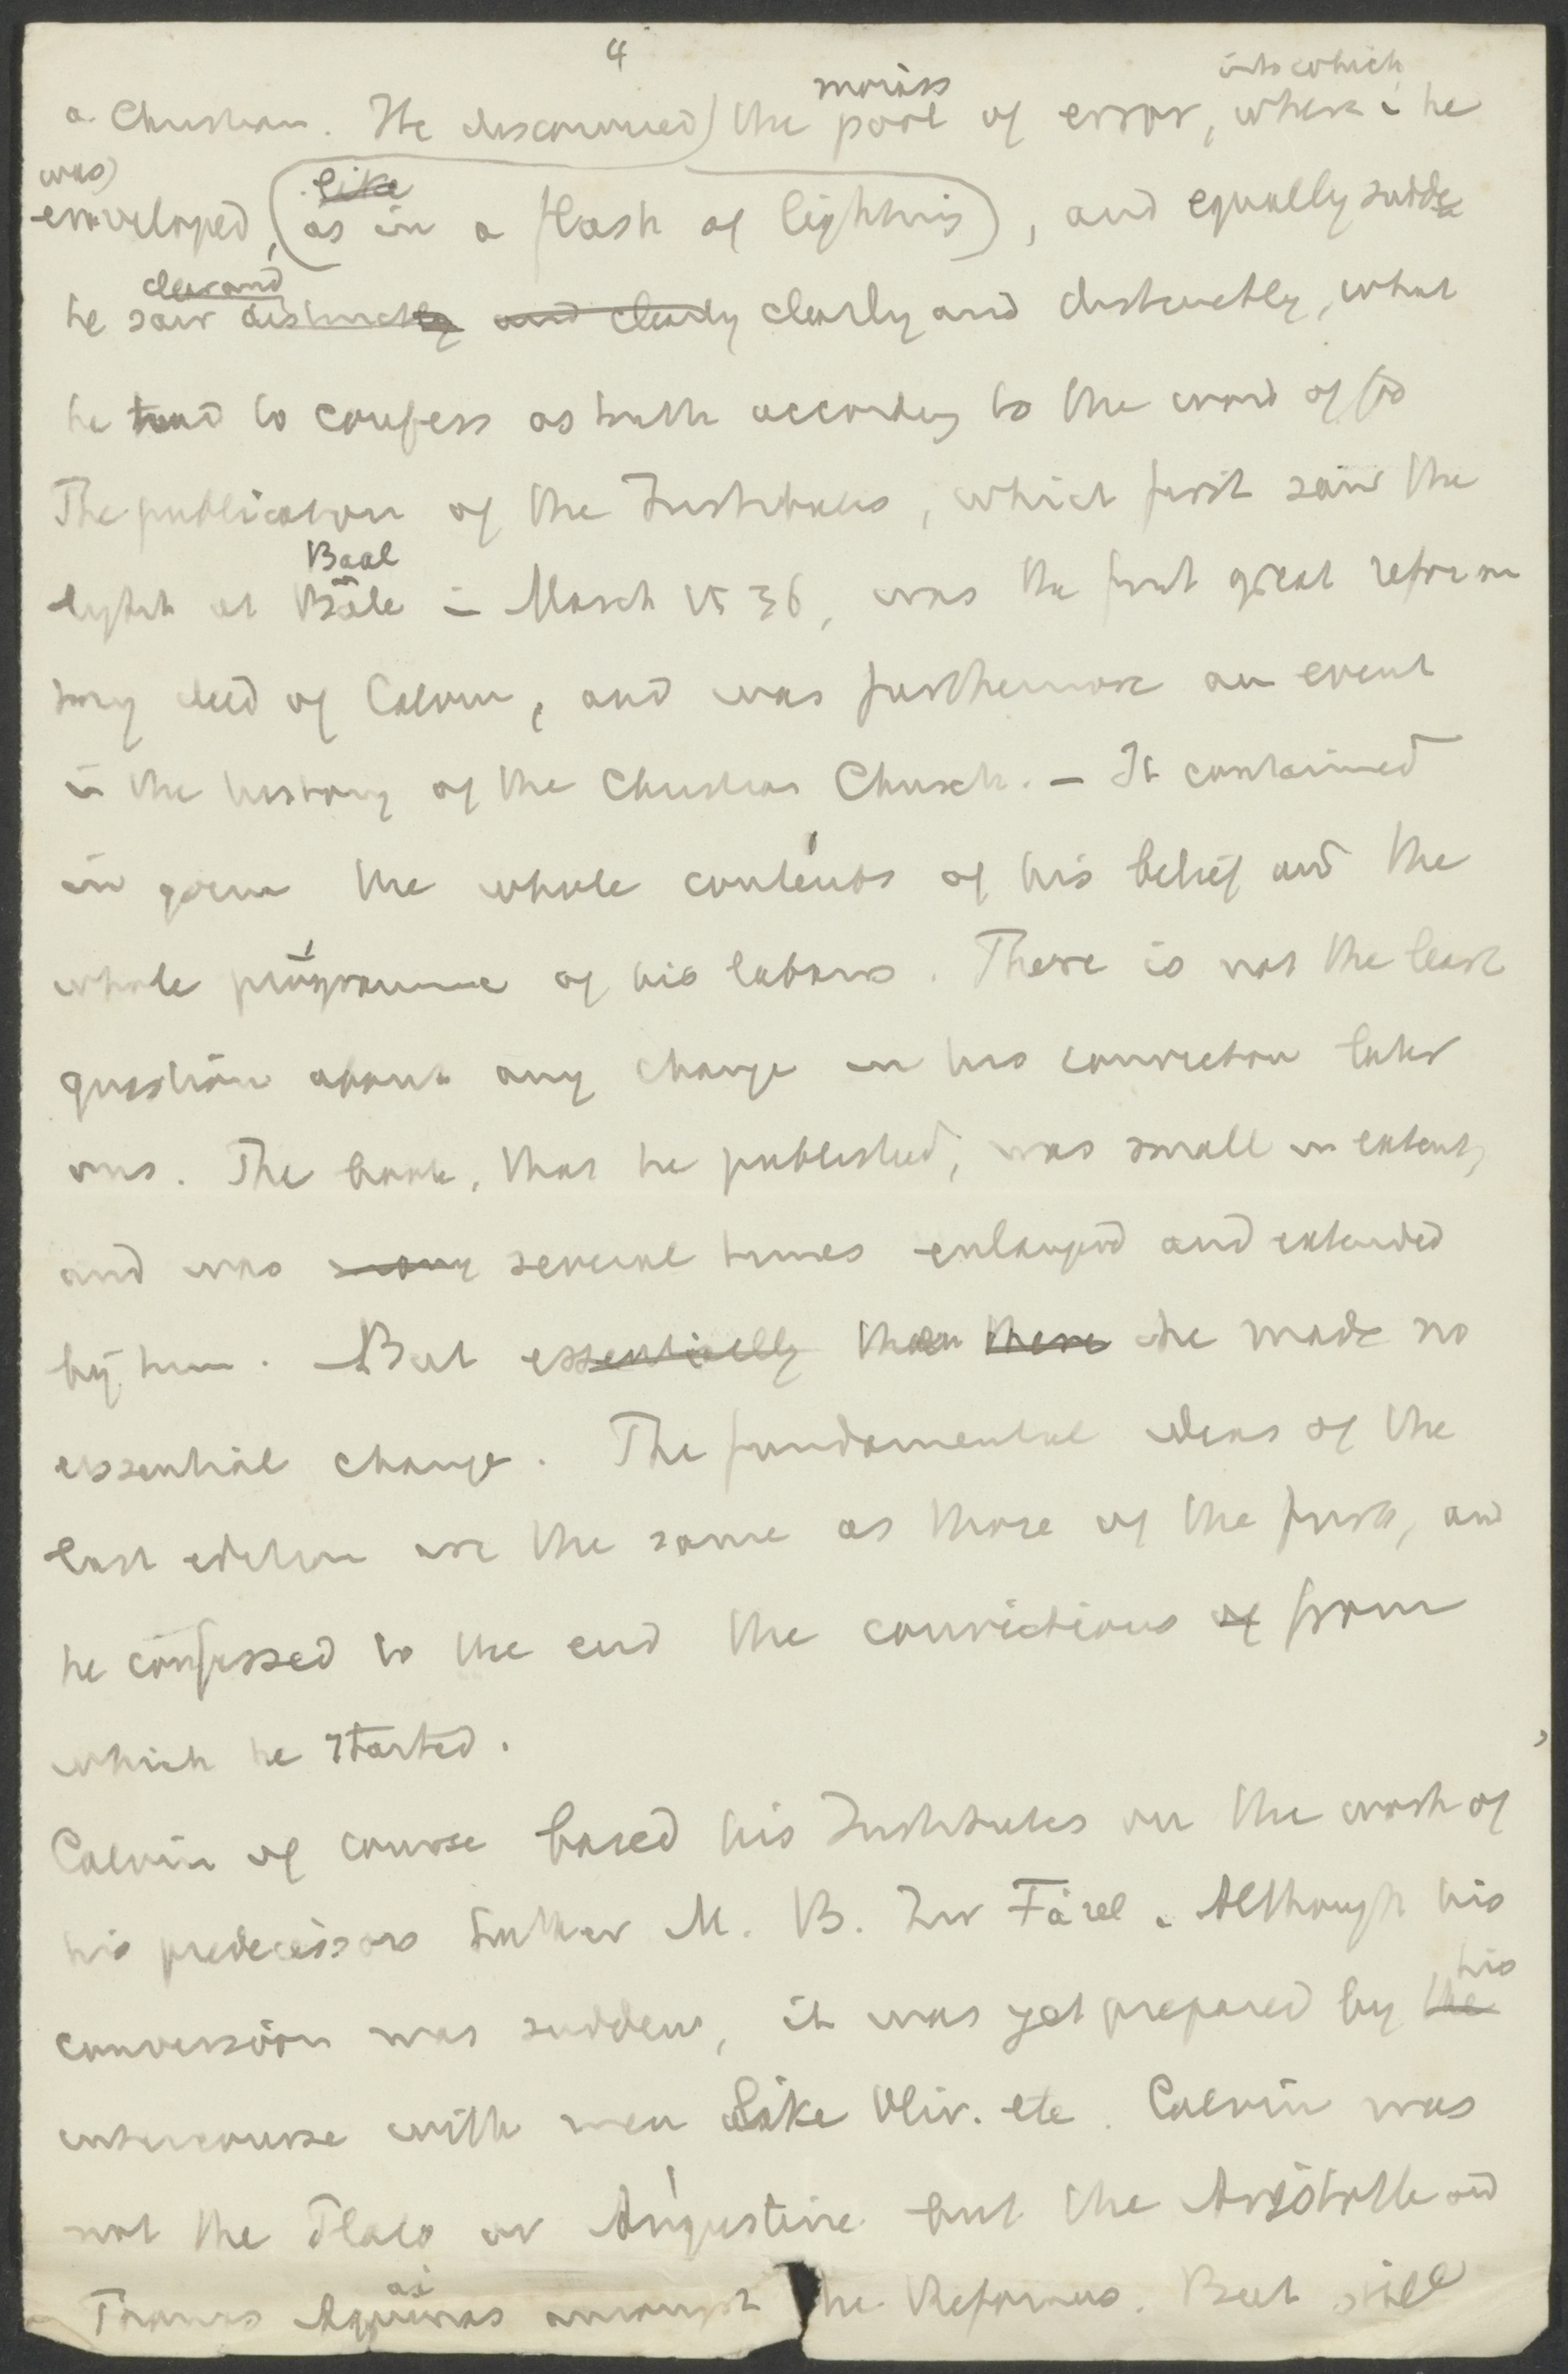 4
morass into which
a Christian. He discovered) the pool of error, where i he
was)
enveloped, (like as in a flash of lightnig), and equally sudde
clear and
he saw distinctly and clearly clearly and distinctly, what
he had to confess as truth according to the word of God
The publication of the Institutes, which first saw the
Baal
light at Bâle in March 1536, was the first great reforma
tory deed of Calvin, and was furthermore an event
in the history of the Christian Church. – It contained
in germ the whole contents of his belief and the
whole programme of his labours. There is not the least
question about any change in his conviction later
ons. The book, that he published, was small in extent,
and was many several times enlarged and extended
by him. But essentially then there he made no
essential change. The fundamental ideas of the
last edition are the same as those of the first, and
he confessed to the end the convictions of from
which he started.
Calvin of course based his Institutes on the work of
his predecessors Luther M. B. Zw Farel. Although his
his
conversion was sudden, it was yet prepared by the
intercourse with men like Oliv. etc. Calvin was
not the Plato or Augustine but the Aristotle and
ai
Thomas Aquinas amongst the Reformers. But still